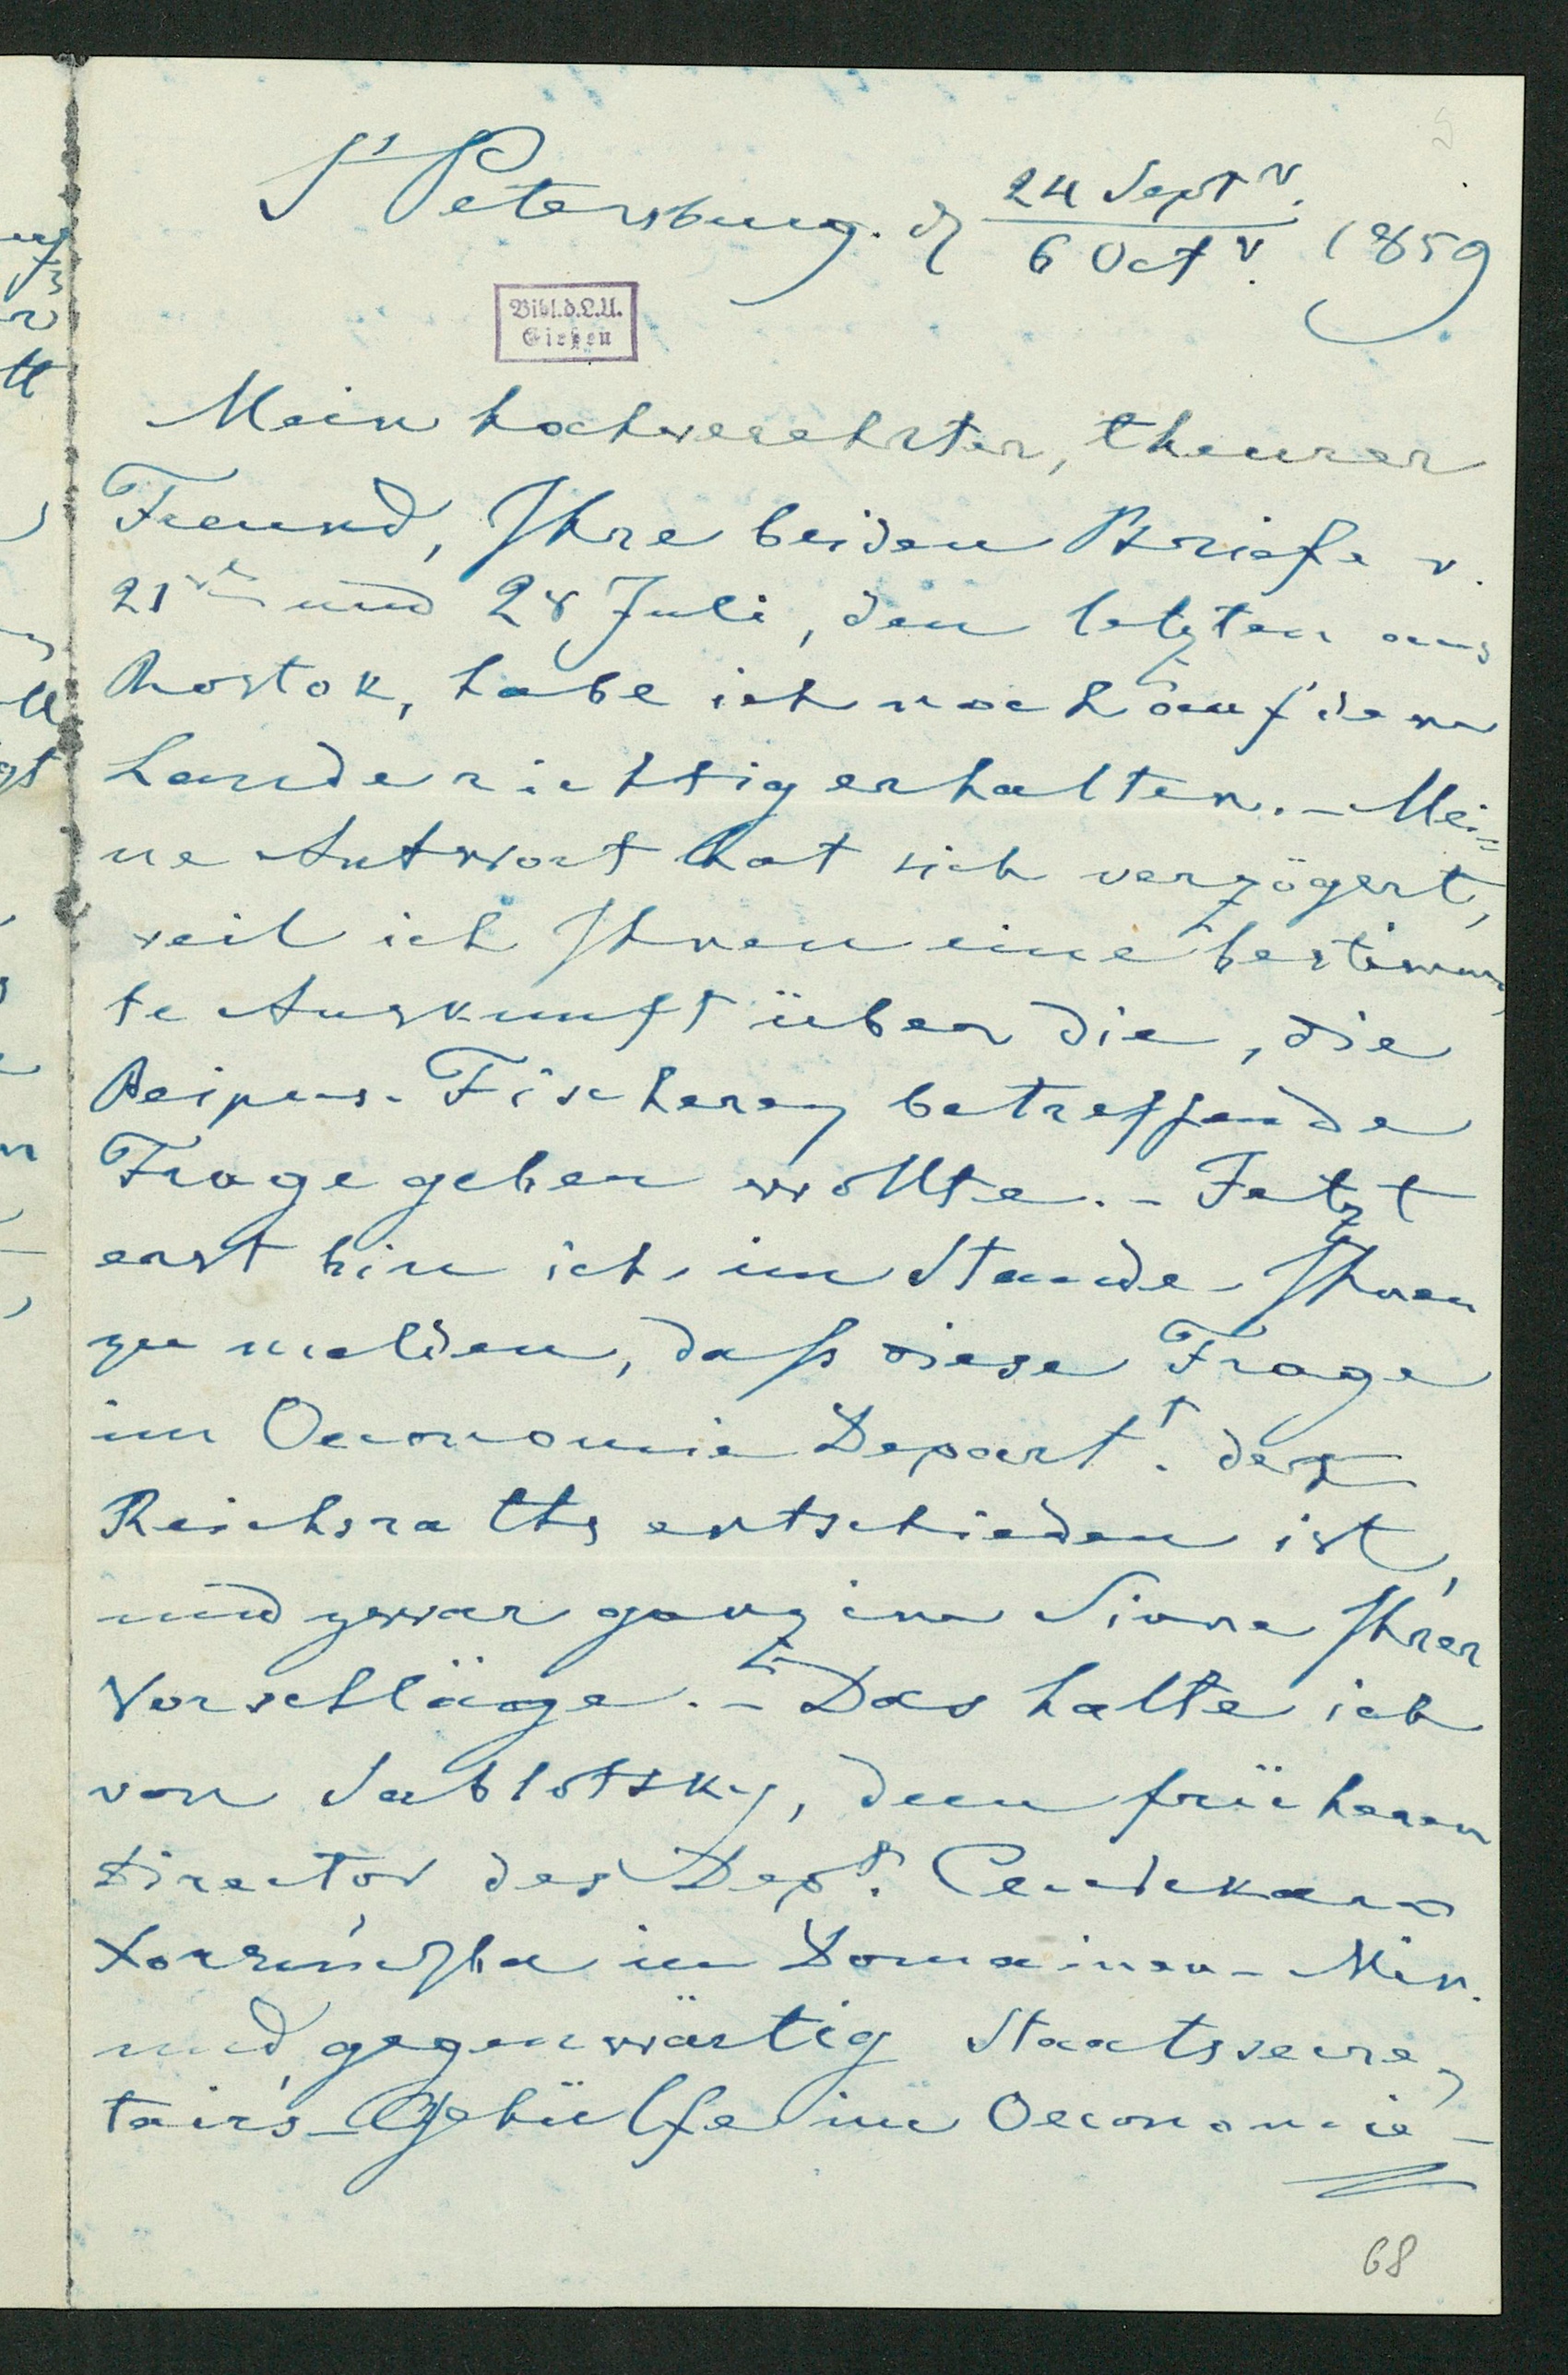 St Petersburg. d 24 Septr. / 6 Octr. 1859
Bibl. d. L. U.
Gießen
Mein hochverehrter, theurer
Freund, Ihre beiden Briefe v.
21ten und 28 Juli, den letzten aus
Rostok, habe ich noch auf dem
Lande richtig erhalten. – Mei=
ne Antwort hat sich verzögert,
weil ich Ihnen eine bestimm
te Auskunft über die, die
Peipus-Fischerey betreffende
Frage geben wollte. – Jetzt
erst bin ich im Stande Ihnen
zu melden, daß diese Frage
im Oeconomie Departt. des
Reichsraths entschieden ist,
und zwar ganz im Sinne Ihrer
Vorschläge. – Das hatte ich
von Sablotsky, dem früheren
Director des Dept. Сельскаго
Хозяйства im Domainen-Min.
und gegenwärtig Staatssecre-
tairs-Gehülfe im Oeconomie-
68